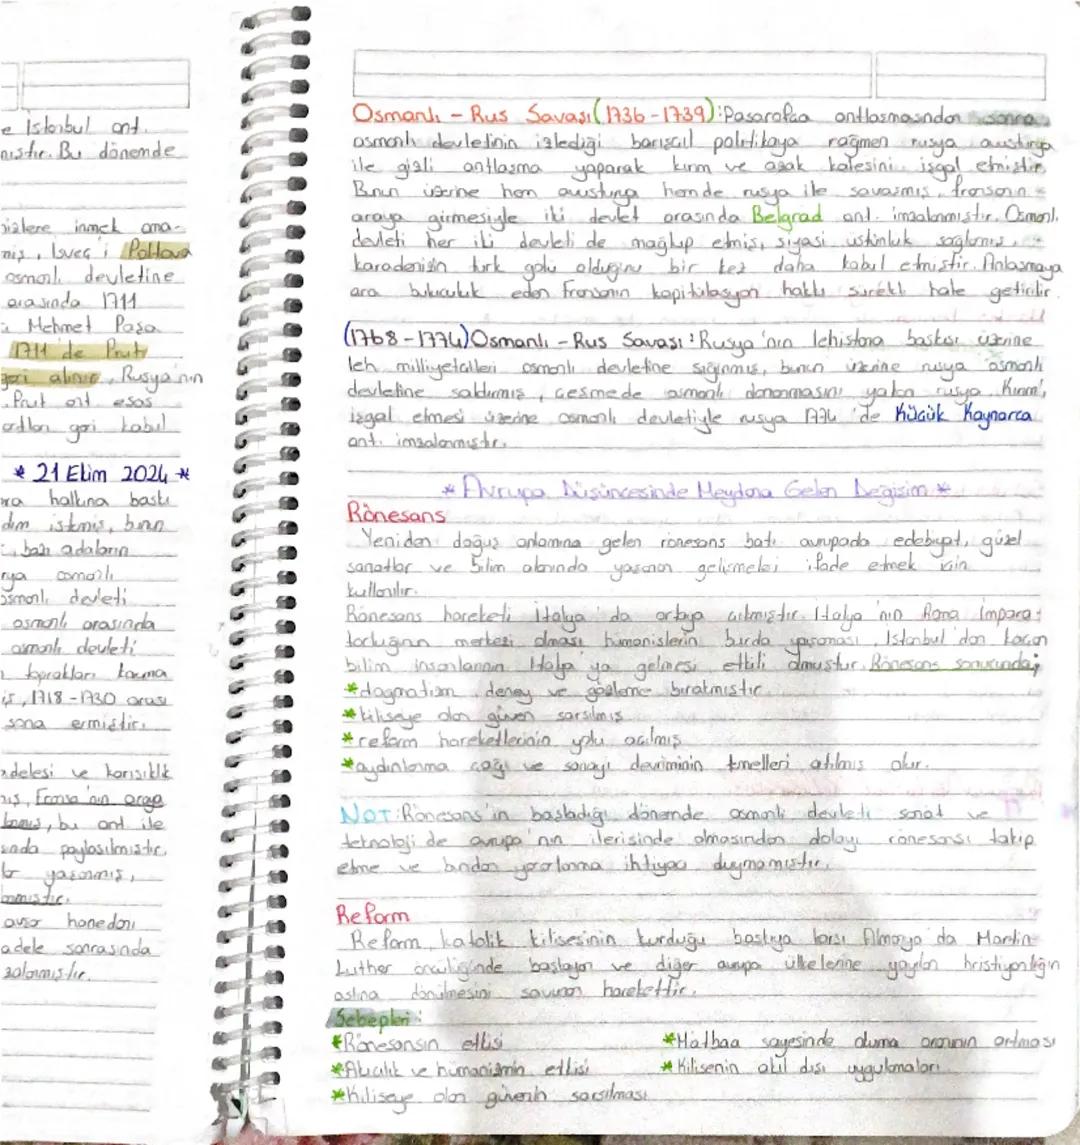 e Istanbul ant.
mıştır. Bu dönemde
nizlere inmek ama-
miş, İsveç'i Poltava
osmanlı devletine
arasında 1711
Mehmet Paşa
1711'de Prut
geri alınır, Rusya'nın
Prut ant esas
geri kabul
* 21 Ekim 2024 *
halkına baskı
istemiş, bunun
bazı adaların
osmanlı
osmanlı devleti
osmanlı arasında
osmanlı devleti
toprakları
iş, 1718-1730 arası
sona ermiştir.
delesi ve karışıklık
Fransa'nın araya
bu ant ile
paylaşılmıştır.
yaşanmış,
hanedanı
adele sonrasında
zalanmıştır.
Osmanlı - Rus Savaşı (1736-1739): Pasarofça antlaşmasından sonra
osmanlı devletinin izlediği barışcıl politikaya rağmen rusya avusturya
ile gizli antlaşma yaparak kırım ve azak kalesini işgal etmiştir.
Bunun üzerine hem avusturya hemde rusya ile savaşmış, fransanın
araya girmesiyle iki devlet arasında Belgrad ant. imzalanmıştır. Osmanlı
devleti her iki devleti de mağlup etmiş, siyasi üstünlük sağlamış,
karadenizin türk gölü olduğunu bir kez daha kabul etmiştir. Anlaşmaya
ara buluculuk eden fransanın kapitülasyon hakkı sürekli hale getirilir.
(1768-1774) Osmanlı - Rus Savaşı: Rusya'nın lehistana baskısı üzerine
leh milliyetçileri osmanlı devletine sığınmış, bunun üzerine rusya osmanlı
devletine saldırmış, çeşmede osmanlı donanmasını yakan rusya Kırım'ı
işgal etmesi üzerine osmanlı devletiyle rusya 1774'de Küçük Kaynarca
ant. imzalanmıştır.
* Avrupa Düşüncesinde Meydana Gelen Değişim *
Rönesans
Yeniden doğuş anlamına gelen rönesans batı avrupada edebiyat, güzel
sanatlar ve bilim alanında yaşanan gelişmeleri ifade etmek için
kullanılır.
Rönesans hareketi İtalya'da ortaya çıkmıştır. İtalya'nın Roma İmpara-
torluğunun merkezi olması, hümanislerin burda yaşaması, İstanbul'dan kaçan
bilim insanlarının İtalya'ya gelmesi etkili olmuştur. Rönesans sonucunda;
* dogmatizm deney ve gözleme bırakmıştır.
* kiliseye olan güven sarsılmış
* reform hareketlerinin yolu açılmış
* aydınlanma çağı ve sanayi devriminin temelleri atılmış olur.
NOT: Rönesans'in başladığı dönemde osmanlı devleti sanat ve
teknoloji de avrupa'nın ilerisinde olmasından dolayı rönesansı takip
etme ve bundan yararlanma ihtiyacı duymamıştır.
Reform
Reform, katolik kilisesinin kurduğu baskıya karşı Almanya'da Martin
Luther öncülüğünde başlayan ve diğer avrupa ülkelerine yayılan hristiyanlığın
aslına dönülmesini savunan harekettir.
Sebepleri:
* Rönesansın etkisi
* Matbaa sayesinde okuma oranının artması
* Akılcılık ve hümanizmin etkisi
* Kilisenin akıl dışı uygulamaları
* Kiliseye olan güvenin sarsılması